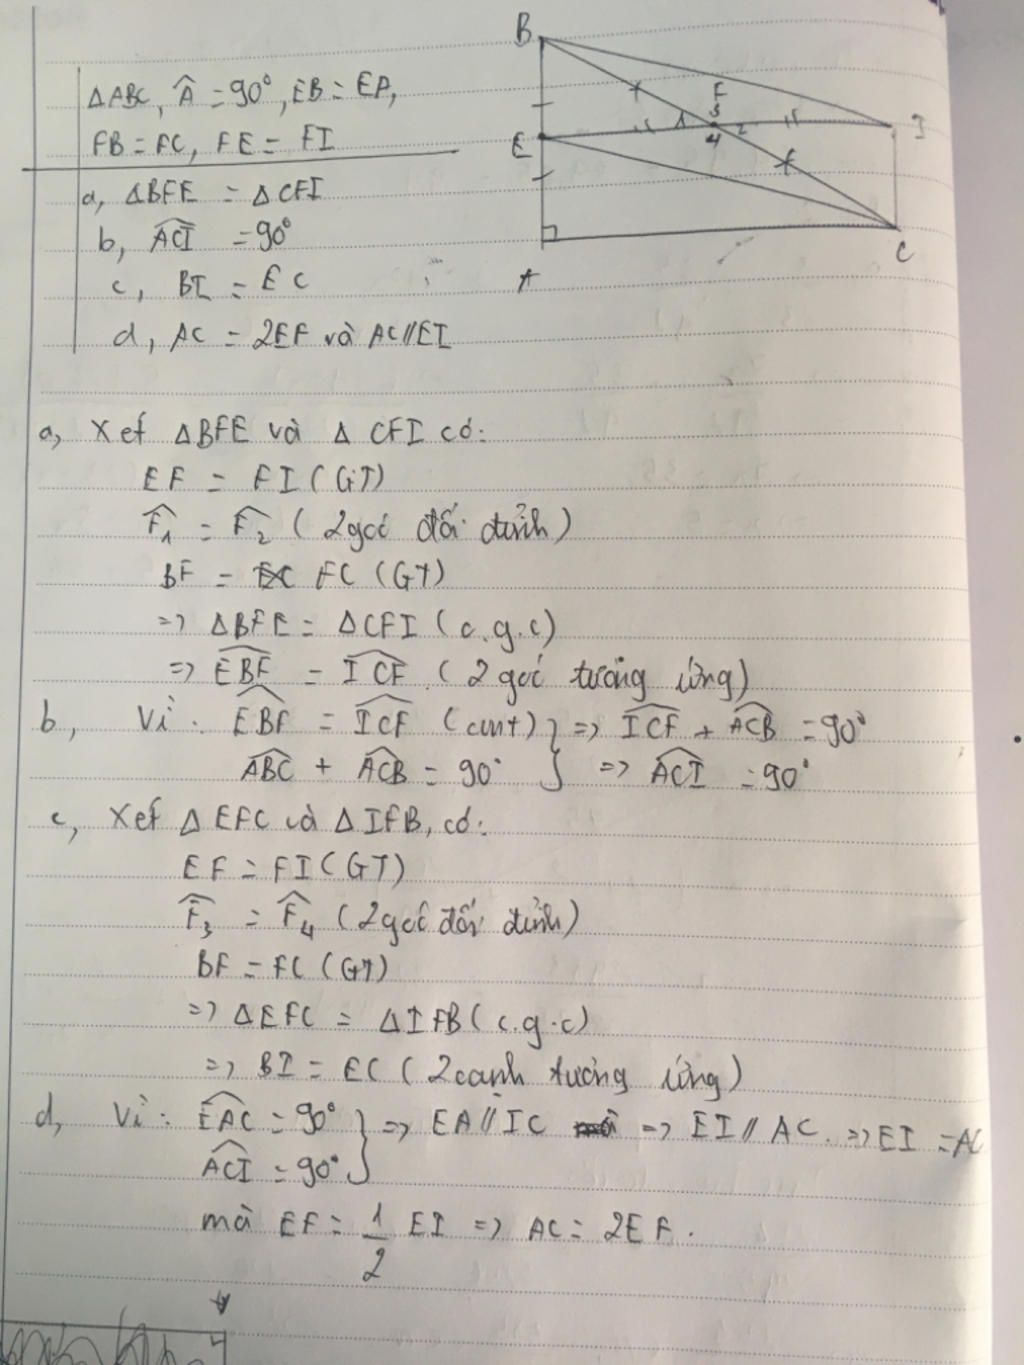 B
ΔABC, Â = 90°, EB = EA,
FB = FC, FE = FI
F
3
1 2
4
I
E
a, ΔBFE = ΔCFI
b, ACI = 90°
C
c, BI = EC
A
d, AC = 2EF và AC//EI
a, Xét ΔBFE và Δ CFI có:
EF = FI (GT)
F̂₁ = F̂₂ (2 góc đối đỉnh)
BF = FC (GT)
=> ΔBFE = ΔCFI (c.g.c)
=> EBF = ICF (2 góc tương ứng)
b, Vì: EBF = ICF (cmt) } => ICF + ACB = 90°
ABC + ACB = 90° => ACI = 90°
c, Xét Δ EFC và Δ IFB, có:
EF = FI (GT)
F̂₃ = F̂₄ (2 góc đối đỉnh)
BF = FC (GT)
=> ΔEFC = ΔIFB (c.g.c)
=> BI = EC (2 cạnh tương ứng)
d, Vì: EAC = 90° } => EA // IC => EI // AC. => EI = AC
ACI = 90°
mà EF = 1/2 EI => AC = 2EF.